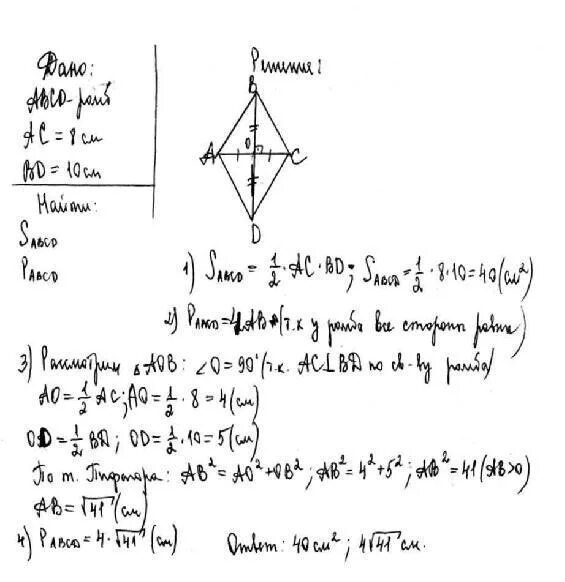 Дано:
ABCD - ромб
AC = 8 см
BD = 10 см
Найти:
S_ABCD
P_ABCD
Решение:
B
A O C
D
1) S_ABCD = 1/2 · AC · BD; S_ABCD = 1/2 · 8 · 10 = 40 (см²)
2) P_ABCD = 4AB (т.к у ромба все стороны равны)
3) Рассмотрим △AOB: ∠O = 90° (т.к. AC⊥BD по св-ву ромба)
AO = 1/2 AC; AO = 1/2 · 8 = 4 (см)
OD = 1/2 BD; OD = 1/2 · 10 = 5 (см)
По т. Пифагора: AB² = AO² + OB²; AB² = 4² + 5²; AB² = 41 (AB>0)
AB = √41 (см)
4) P_ABCD = 4 · √41 (см)
Ответ: 40 см²; 4√41 см.